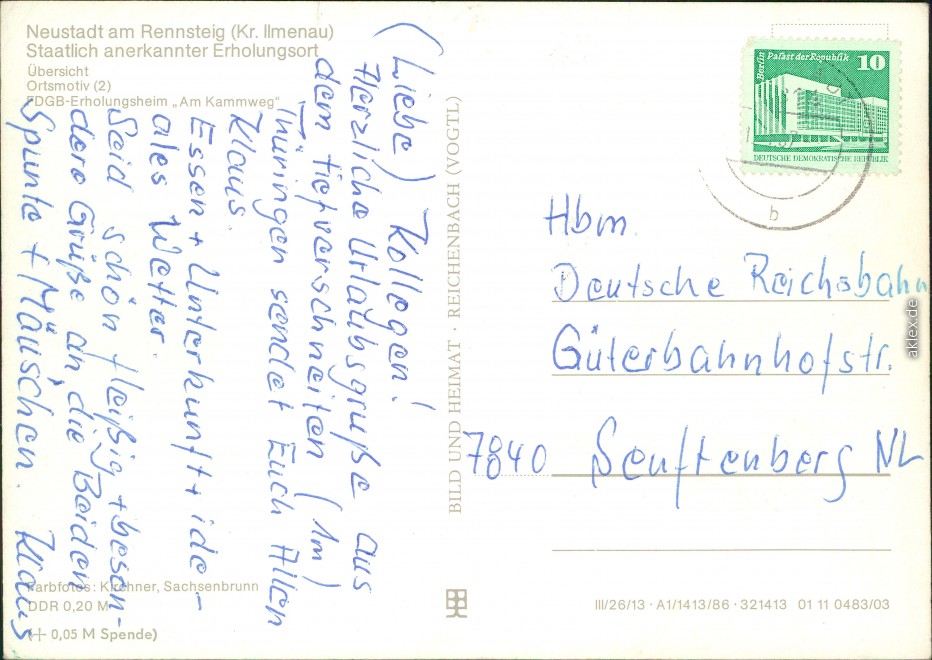 Neustadt am Rennsteig (Kr. Ilmenau)
Staatlich anerkannter Erholungsort
Übersicht
Ortsmotiv (2)
FDGB-Erholungsheim „Am Kammweg“
(Liebe) Kollegen!
Herzliche Urlaubsgrüße aus
dem tiefverschneiten (1m)
Thüringen sendet Euch Allen
Klaus.
Essen + Unterkunft + ide-
ales Wetter.
Seid schön fleißig + beson-
dere Grüße an die Beiden
Spunte + Mäuschen. Klaus
Farbfotos: Kirchner, Sachsenbrunn
DDR 0,20 M
(+ 0,05 M Spende)
BILD UND HEIMAT · REICHENBACH (VOGTL)
Berlin Palast der Republik 10
DEUTSCHE DEMOKRATISCHE REPUBLIK
b
Hbm.
Deutsche Reichsbahn
Güterbahnhofstr.
7840 Senftenberg NL
III/26/13 · A1/1413/86 · 321413 01 11 0483/03
aklex.de